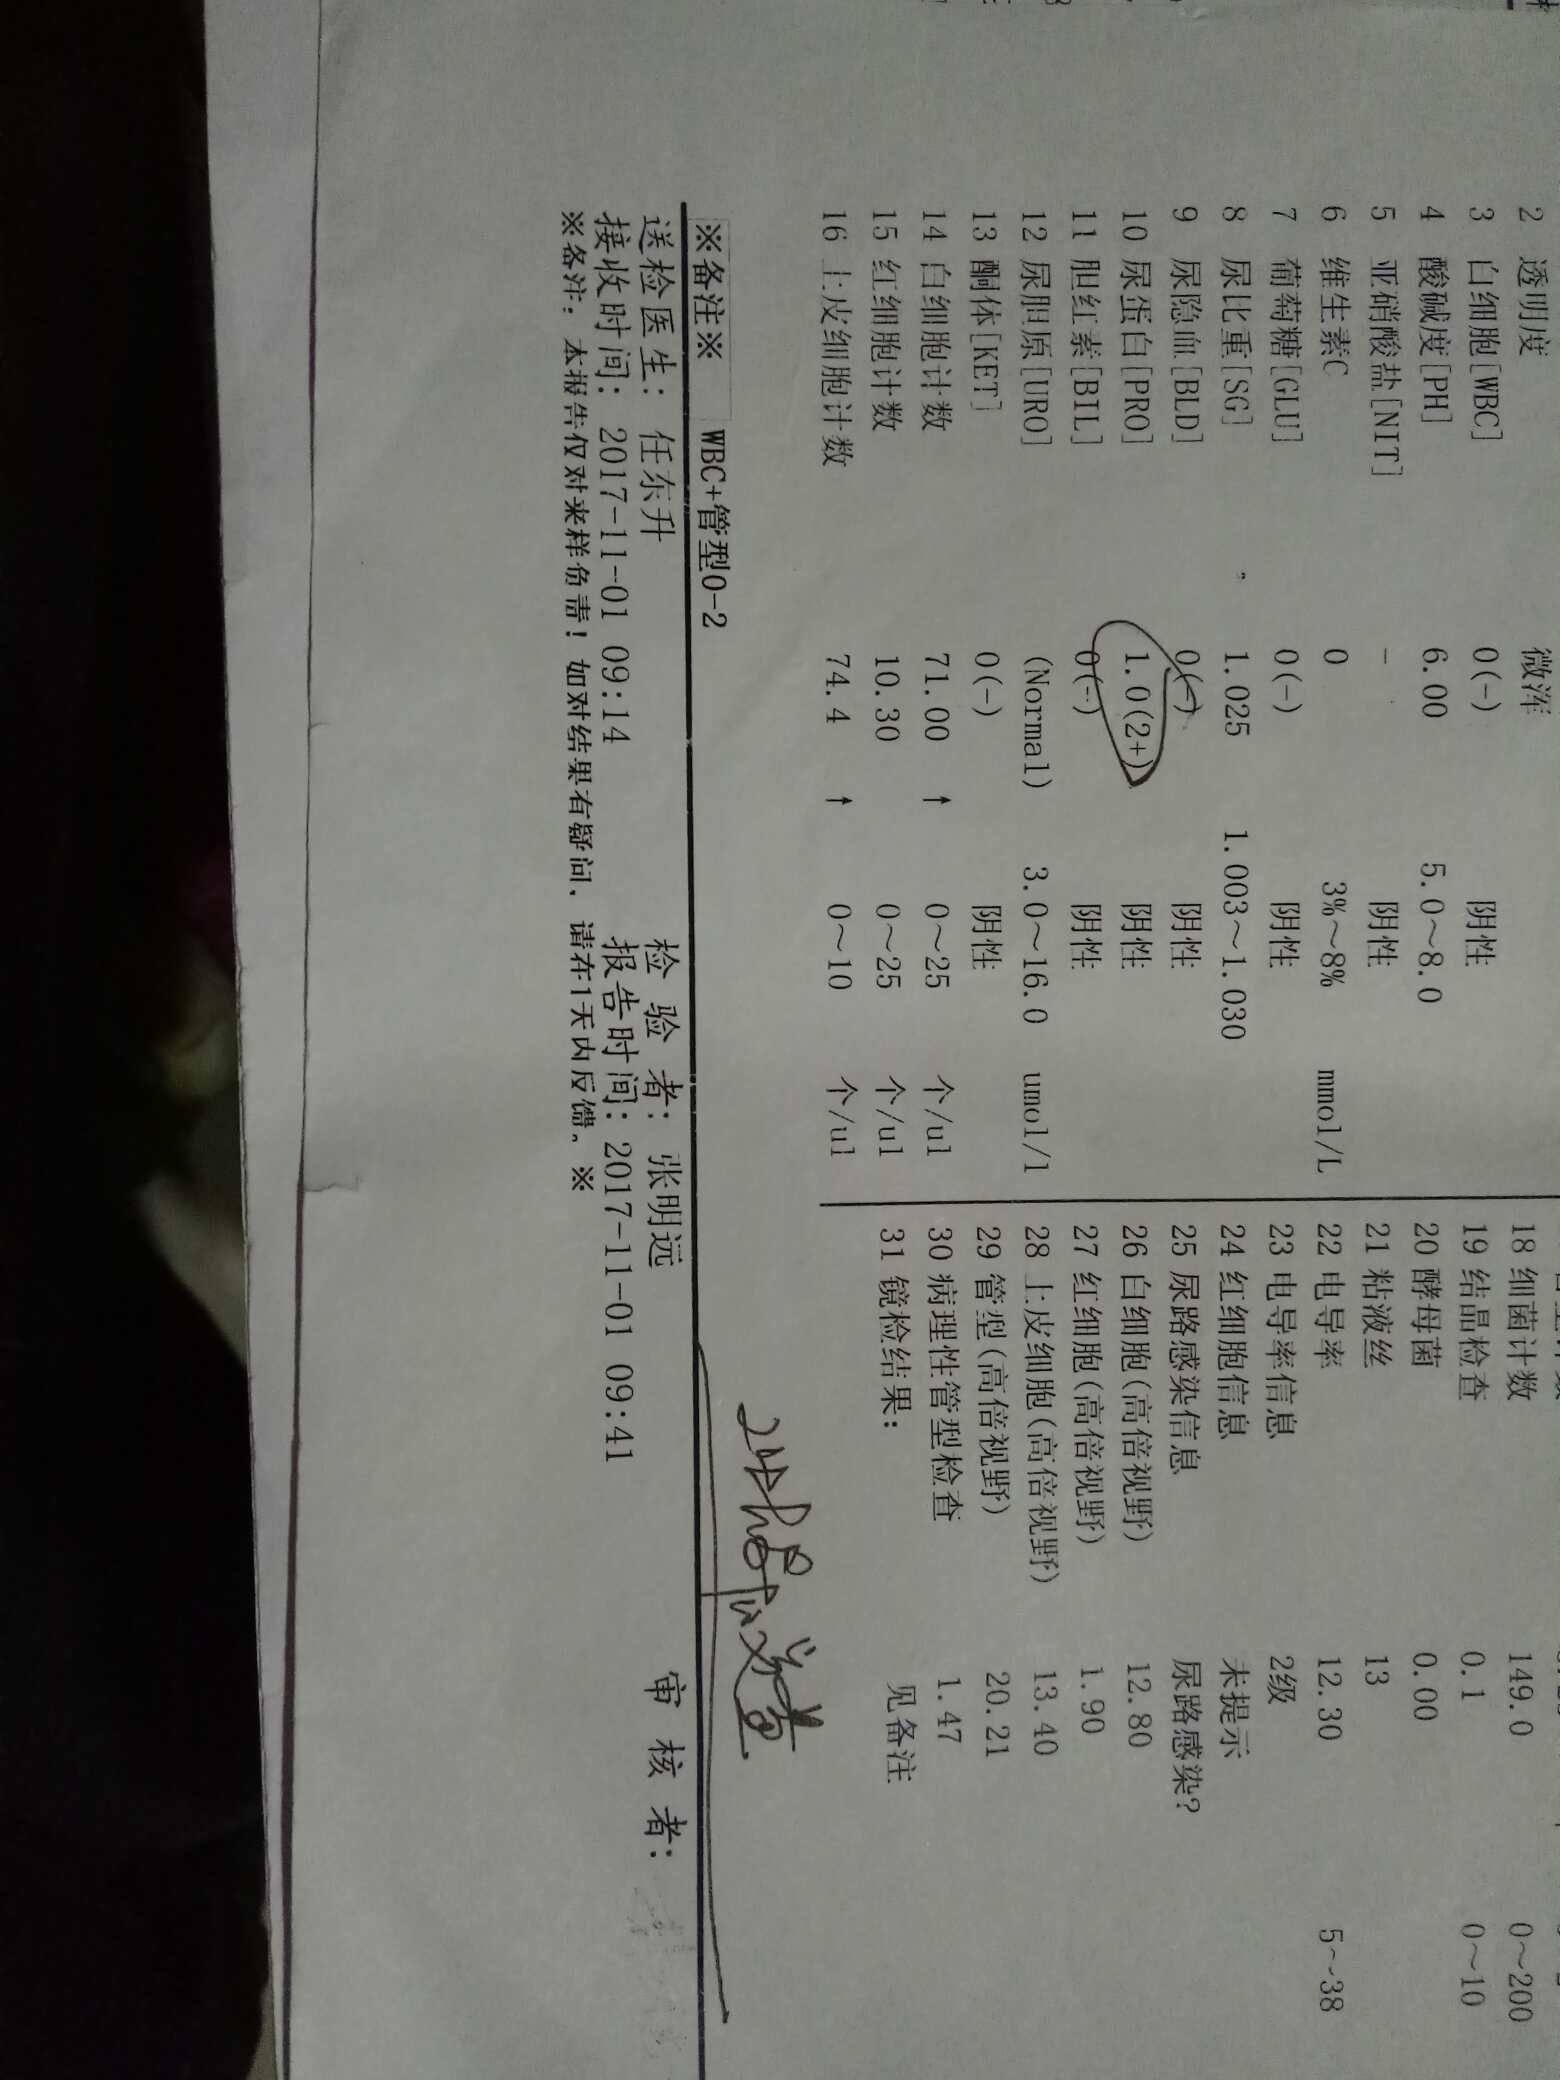 2 透明度 微浑
3 白细胞[WBC] 0(-) 阴性
4 酸碱度[PH] 6.00 5.0～8.0
5 亚硝酸盐[NIT] - 阴性
6 维生素C 0 3%～8% mmol/L
7 葡萄糖[GLU] 0(-) 阴性
8 尿比重[SG] 1.025 1.003～1.030
9 尿隐血[BLD] 0(-) 阴性
10 尿蛋白[PRO] 1.0(2+) 阴性
11 胆红素[BIL] 0(-) 阴性
12 尿胆原[URO] (Normal) 3.0～16.0 umol/l
13 酮体[KET] 0(-) 阴性
14 白细胞计数 71.00 ↑ 0～25 个/ul
15 红细胞计数 10.30 0～25 个/ul
16 上皮细胞计数 74.4 ↑ 0～10 个/ul
18 细菌计数 149.0 0～200
19 结晶检查 0.1 0～10
20 酵母菌 0.00
21 粘液丝 13
22 电导率 12.30 5～38
23 电导率信息 2级
24 红细胞信息 未提示
25 尿路感染信息 尿路感染?
26 白细胞(高倍视野) 12.80
27 红细胞(高倍视野) 1.90
28 上皮细胞(高倍视野) 13.40
29 管型(高倍视野) 20.21
30 病理性管型检查 1.47
31 镜检结果: 见备注
※备注※ WBC+管型0-2
送检医生: 任东升 检 验 者: 张明远 审 核 者:
接收时间: 2017-11-01 09:14 报告时间: 2017-11-01 09:41
※备注: 本报告仅对来样负责! 如对结果有疑问, 请在1天内反馈。※